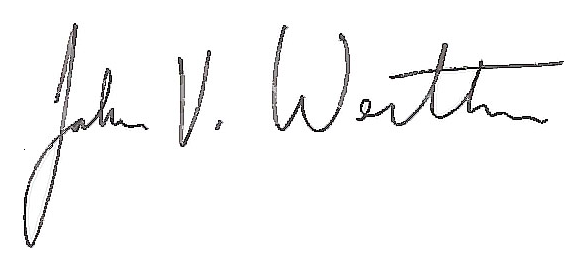 John V. Werthe